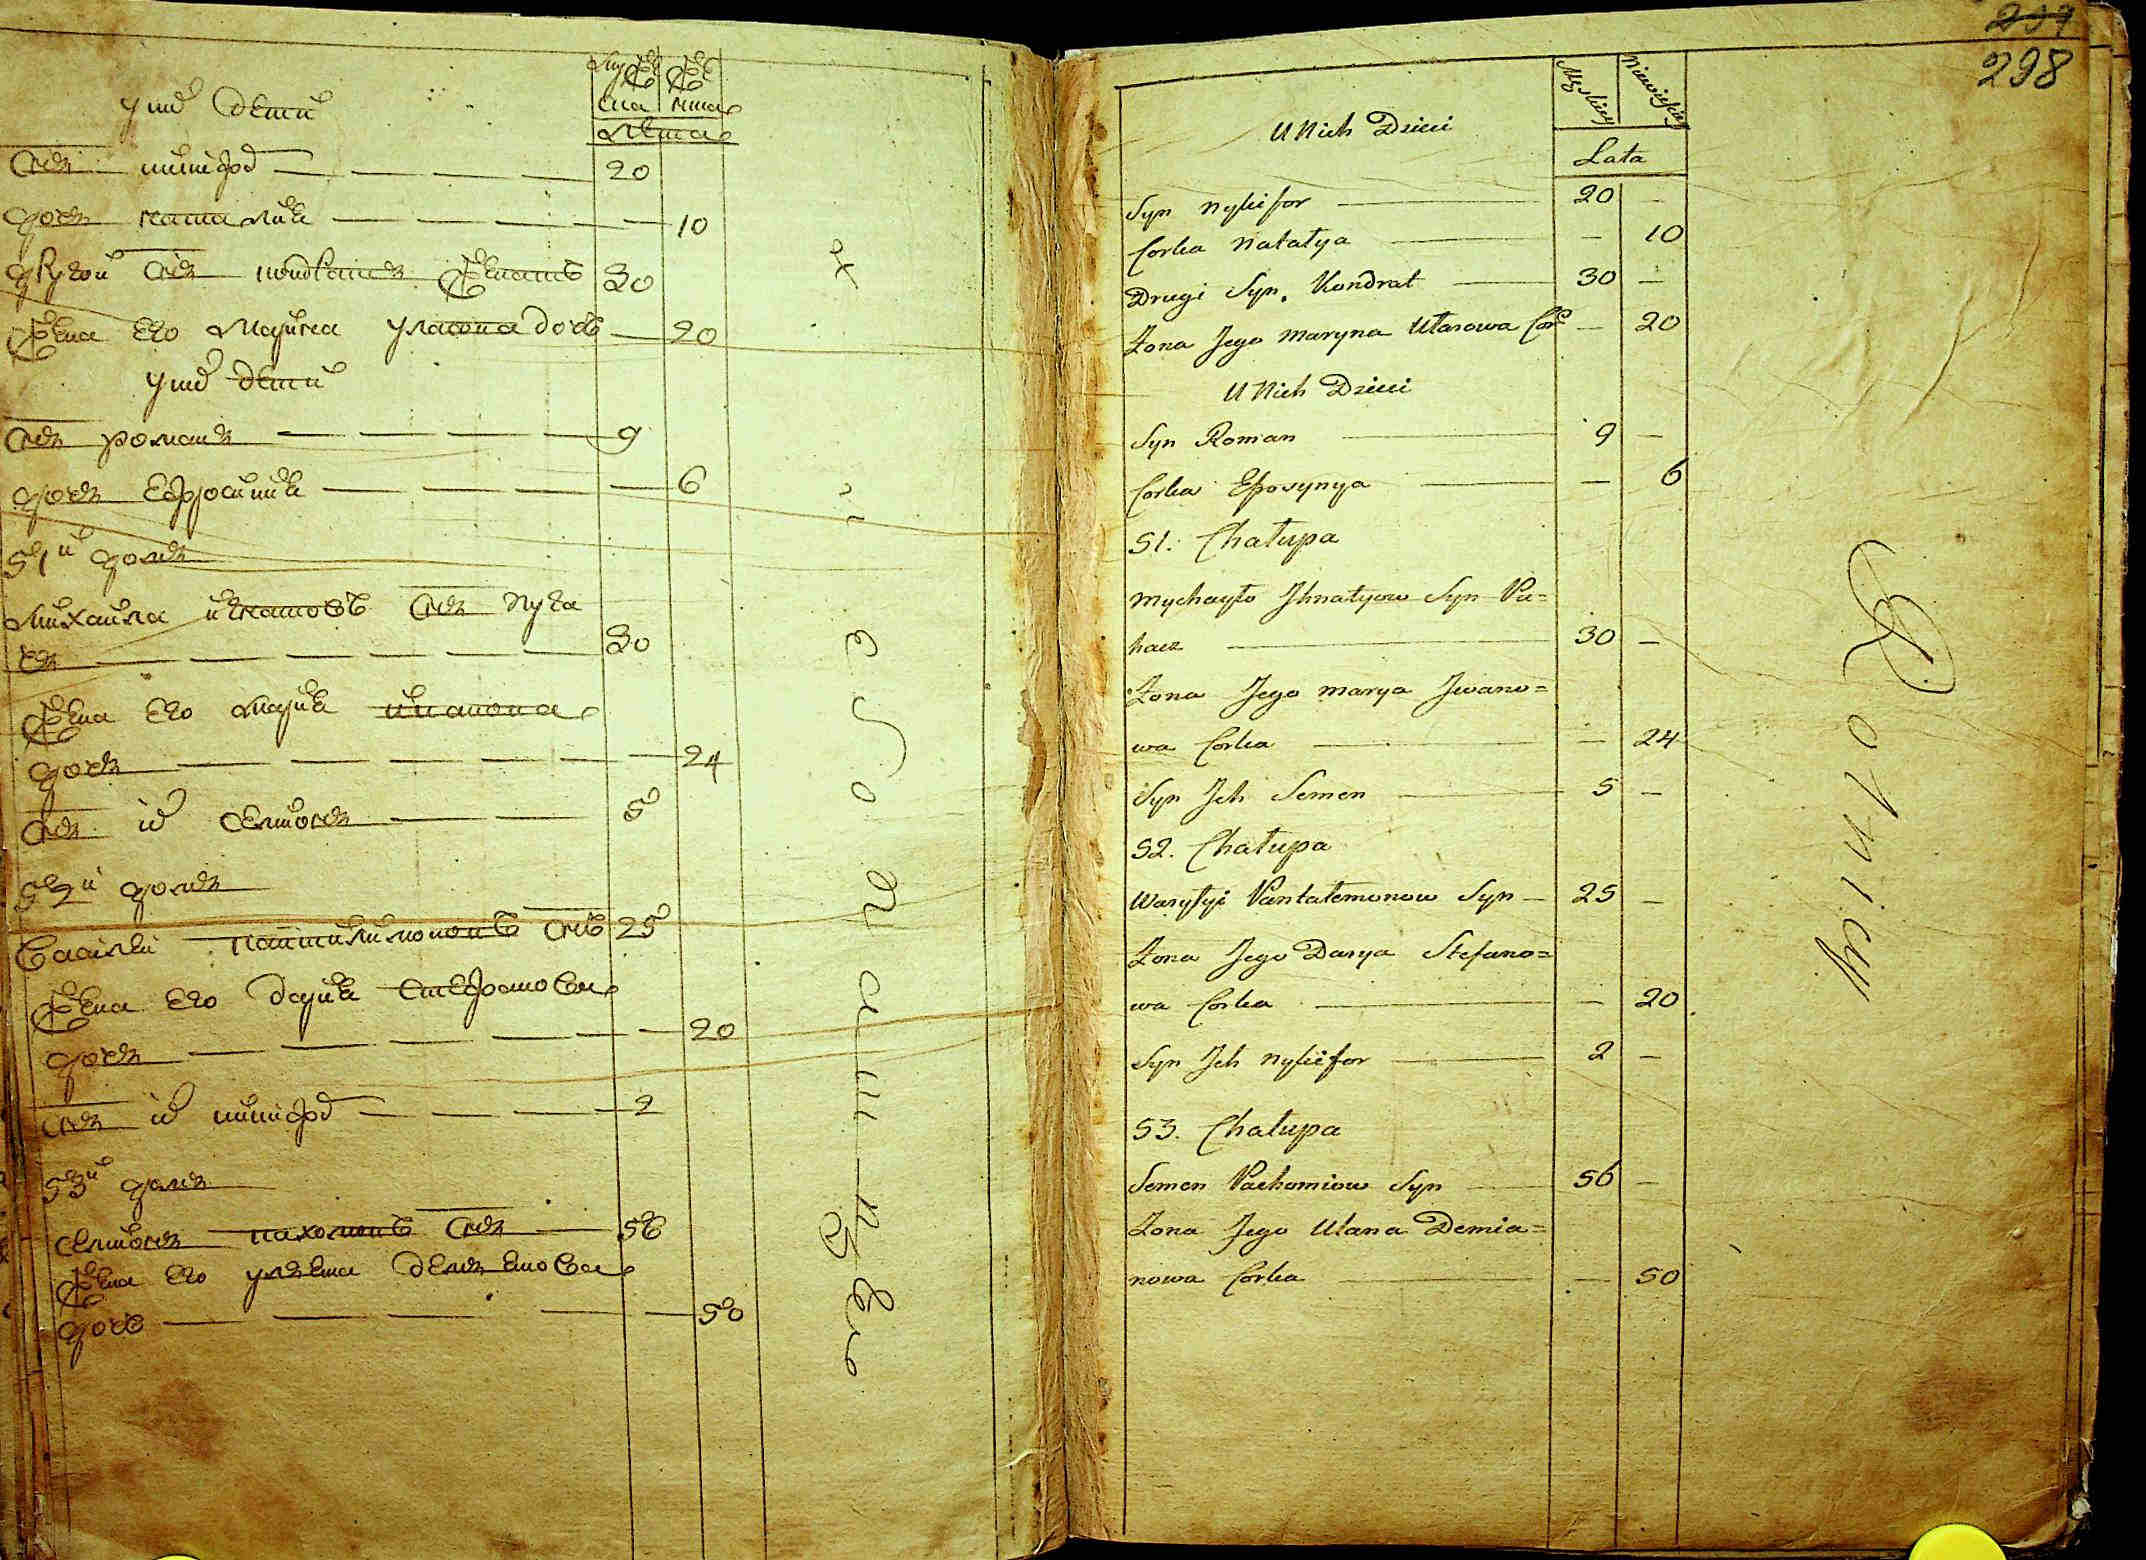 у них дети
муже
ска
женс
кша
лета
Синъ никифор 20
дочъ наталия 10
другой Синъ кондратъ женатъ 30
жена его марина уласова дочь 20
у них дети
Синъ романъ 9
дочъ ефросиния 6
51й домъ
михаила игнатовъ Синъ пуга
чъ 30
жена его мария иванова
дочъ 24
Синъ их семионъ 5
52й домъ
василий пантилимоновъ Синъ 25
жена его дария стефанова
дочъ 20
Синъ их никифор 2
53й домъ
семионъ пахомовъ Синъ 56
жена его улиана демианова
дочь 50
297
298
U Nich Dzieci
Męzkiey
Niewieściey
Lata
Syn Nykifor 20 –
Corka Natalya – 10
Drugi Syn. Kondrat 30 –
Żona Jego Maryna Ułasowa Cor: – 20
U Nich Dzieci
Syn Roman 9 –
Corka Efrosynya – 6
51. Chałupa
Mychayło Jhnatyow Syn Pu=
hacz 30 –
Żona Jego Marya Jwano=
wa Corka – 24
Syn Jch Semen 5 –
52. Chałupa
Wasylyi Pantalemonow Syn – 25 –
Żona Jego Darya Stefano=
wa Corka – 20
Syn Jch Nykifor 2 –
53. Chałupa
Semen Pachomiow Syn 56 –
Żona Jego Ulana Demia=
nowa Corka – 50
Rolnicy